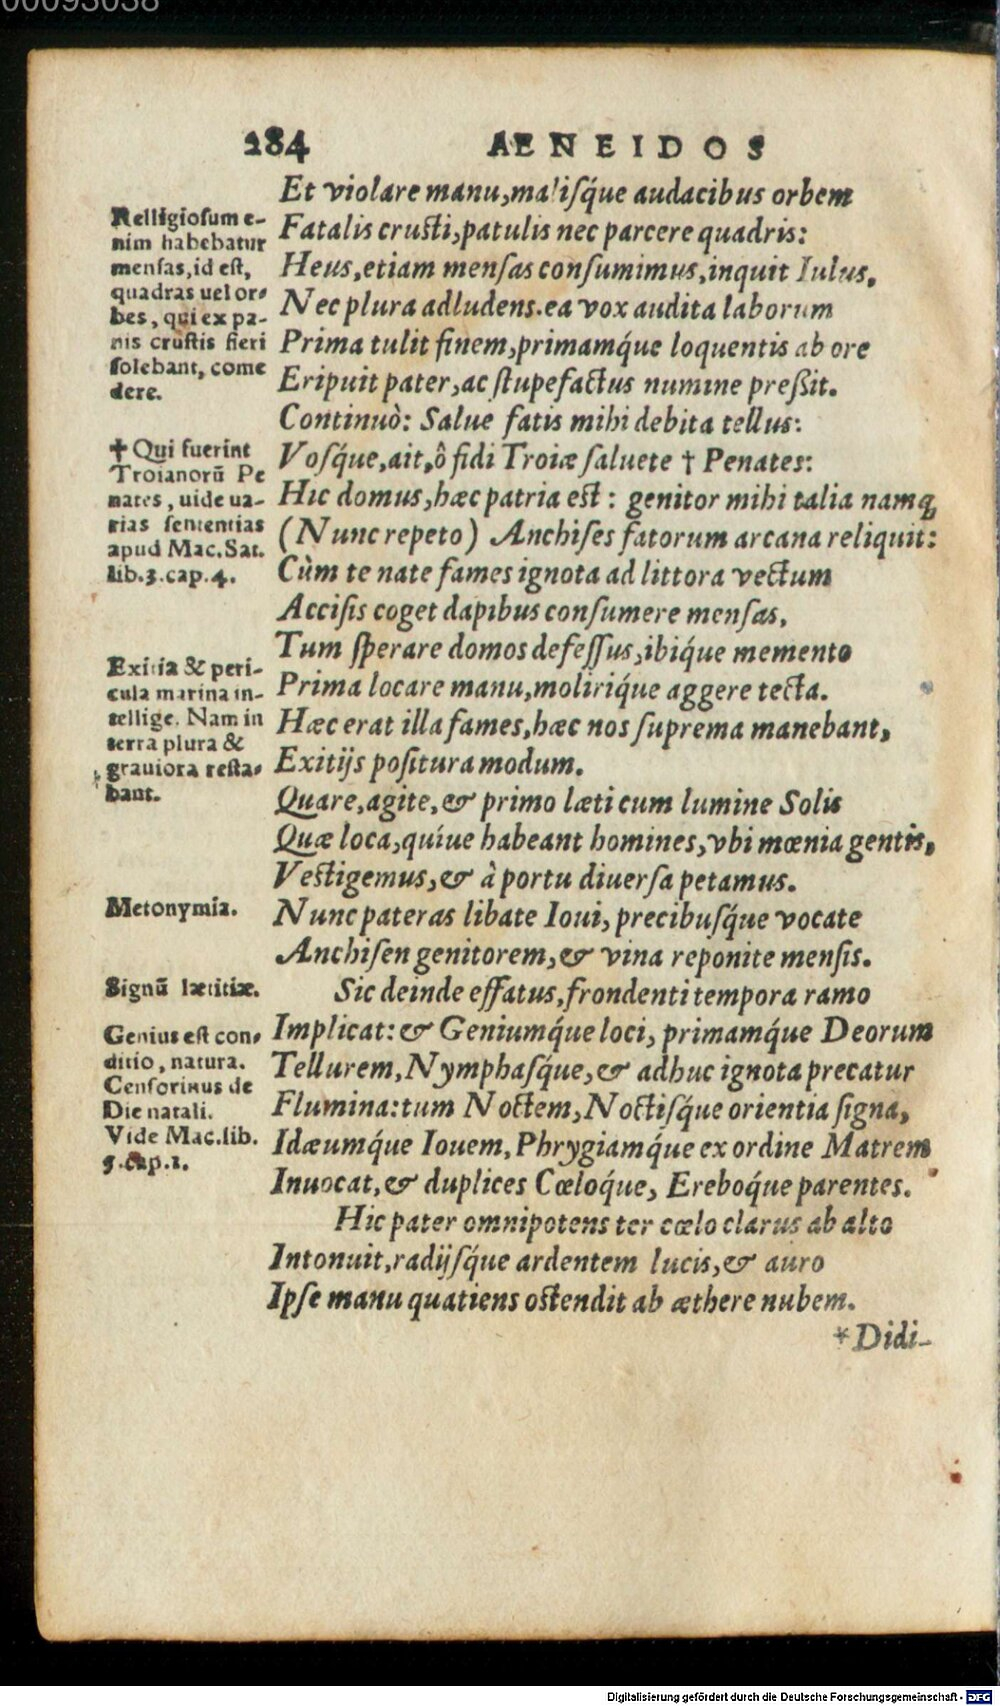 00093038
284 AENEIDOS
Et violare manu, malisq́ue audacibus orbem
Fatalis crusti, patulis nec parcere quadris:
Heus, etiam mensas consumimus, inquit Iulus,
Nec plura adludens. ea vox audita laborum
Prima tulit finem, primamq́ue loquentis ab ore
Eripuit pater, ac stupefactus numine preßit.
Continuò: Salue fatis mihi debita tellus:
Vosq́ue, ait, ô fidi Troiæ saluete † Penates:
Hic domus, hæc patria est: genitor mihi talia namq;
(Nunc repeto) Anchises fatorum arcana reliquit:
Cùm te nate fames ignota ad littora vectum
Accisis coget dapibus consumere mensas,
Tum sperare domos defessus, ibiq́ue memento
Prima locare manu, moliriq́ue aggere tecta.
Hæc erat illa fames, hæc nos suprema manebant,
Exitijs positura modum.
Quare, agite, & primo læti cum lumine Solis
Quæ loca, quíue habeant homines, vbi mœnia gentis,
Vestigemus, & à portu diuersa petamus.
Nunc pateras libate Ioui, precibusq́ue vocate
Anchisen genitorem, & vina reponite mensis.
Sic deinde effatus, frondenti tempora ramo
Implicat: & Geniumq́ue loci, primamq́ue Deorum
Tellurem, Nymphasq́ue, & adhuc ignota precatur
Flumina: tum Noctem, Noctisq́ue orientia signa,
Idæumq́ue Iouem, Phrygiamq́ue ex ordine Matrem
Inuocat, & duplices Cœloq́ue, Ereboq́ue parentes.
Hic pater omnipotens ter cœlo clarus ab alto
Intonuit, radijsq́ue ardentem lucis, & auro
Ipse manu quatiens ostendit ab æthere nubem.
*Didi-
Relligiosum e-
nim habebatur
mensas, id est,
quadras uel or-
bes, qui ex pa-
nis crustis fieri
solebant, come
dere.
† Qui fuerint
Troianorũ Pe
nates, uide ua-
rias sententias
apud Mac. Sat.
lib. 3. cap. 4.
Exitia & peri-
cula marina in-
tellige. Nam in
terra plura &
grauiora resta-
bant.
Metonymia.
Signũ lætitiæ.
Genius est con-
ditio, natura.
Censorinus de
Die natali.
Vide Mac. lib.
5. cap. 1.
Digitalisierung gefördert durch die Deutsche Forschungsgemeinschaft - DFG